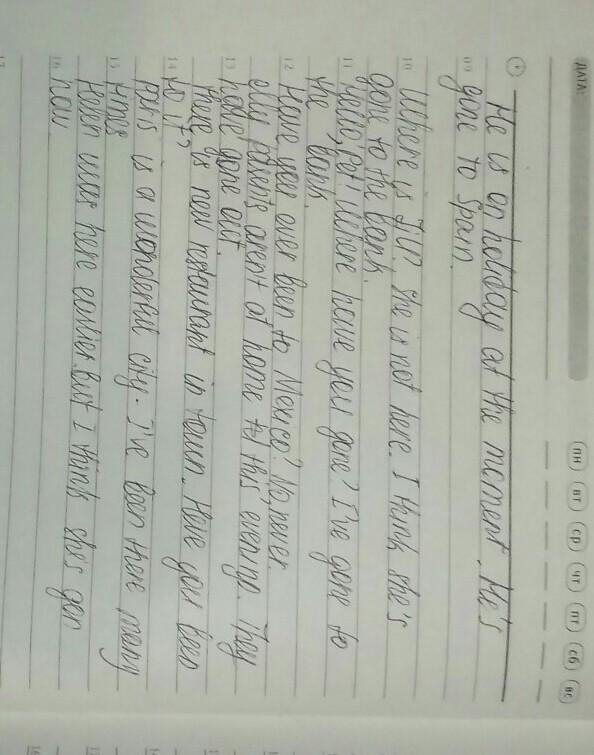 ДАТА:
ПН ВТ СР ЧТ ПТ СБ ВС
He is on holiday at the moment. He's
09 gone to Spain.
10 Where is Jill? She is not here. I think she's
gone to the bank.
11 Hello, Pat! Where have you gone? I've gone to
the bank.
12 Have you ever been to Mexico? No, never.
My parents aren't at home this evening. They
13 have gone out.
There is new restaurant in town. Have you been
14 to it?
Paris is a wonderful city. I've been there many
15 times
Helen was here earlier, but I think she's gon
16 now
17